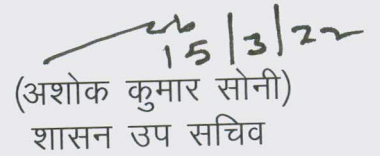 15/3/22
(अशोक कुमार सोनी)
शासन उप सचिव